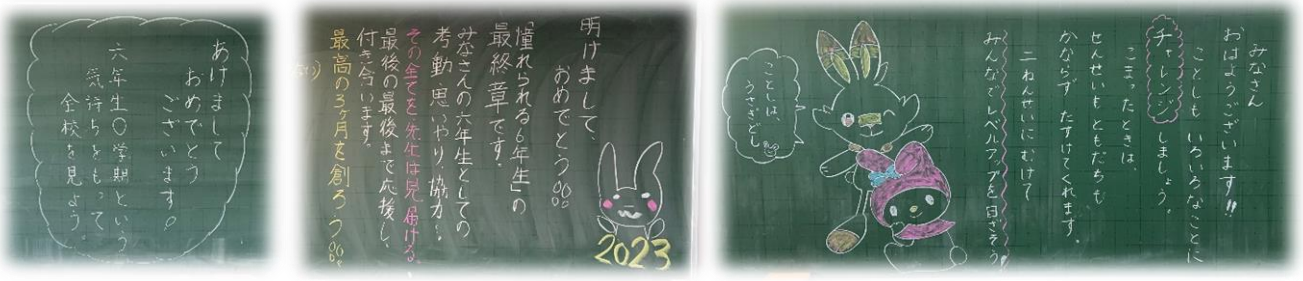 あけまして
おめでとう
ございます。
六年生〇学期という
気持ちをもって、
全校を見よう。
明けまして、
おめでとう。
「憧れられる6年生」の
最終章です。
みなさんの六年生としての
考動、思いやり、協力、
その全てを先生は見届ける。
最後の最後まで応援し、
付き合います。
最高の3ヶ月を創ろう。
2023
みなさん
おはようございます!!
ことしも いろいろなことに
チャレンジしましょう。
こまったときは、
せんせいも ともだちも
かならず たすけてくれます。
二ねんせいに むけて
みんなでレベルアップを目ざそう
ことしは、
うさぎどし